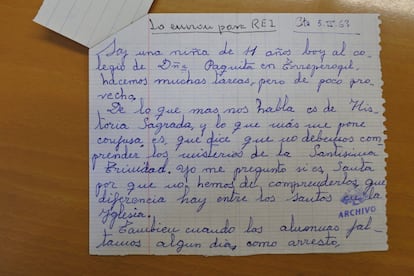 Lo envían para REI 3ta 5.II.63
Soy una niña de 11 años boy al co-
legio de Dña Paquita en Errepérogil,
hacemos muchas tareas, pero de poco pro-
vecho.
De lo que mas nos habla es de His-
toria Sagrada, y lo que más me pone
confusa, es, que dice que no debemos com-
prender los misterios de la Santisima
Trinidad. Yo me pregunto si es Santa
por que no hemos de comprenderlos, que
diferencia hay entre los santos en la
Yglesia.
ARCHIVO
Tambien cuando las alumnas fal-
tamos algun dia, como arresto,